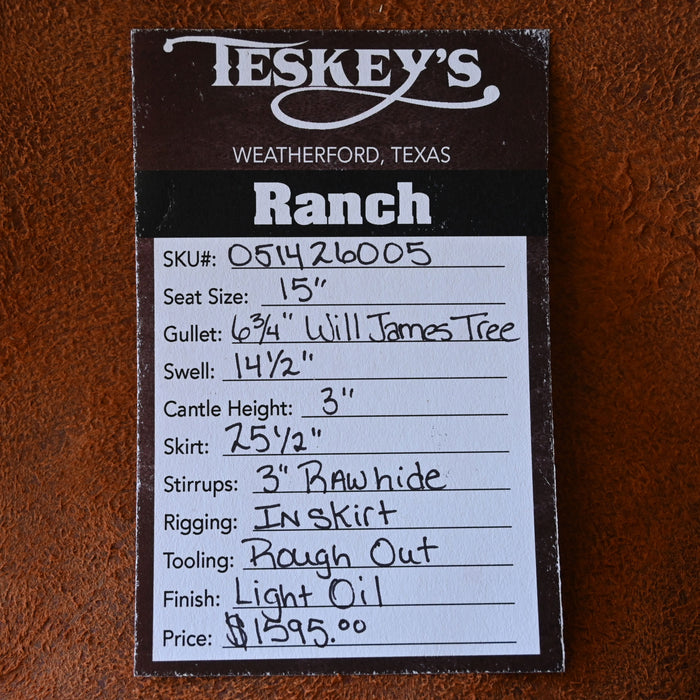 TESKEY'S
WEATHERFORD, TEXAS
Ranch
SKU#: 051426005
Seat Size: 15"
Gullet: 6 3/4" Will James Tree
Swell: 14 1/2"
Cantle Height: 3"
Skirt: 25 1/2"
Stirrups: 3" Rawhide
Rigging: Inskirt
Tooling: Rough Out
Finish: Light Oil
Price: $1595.00